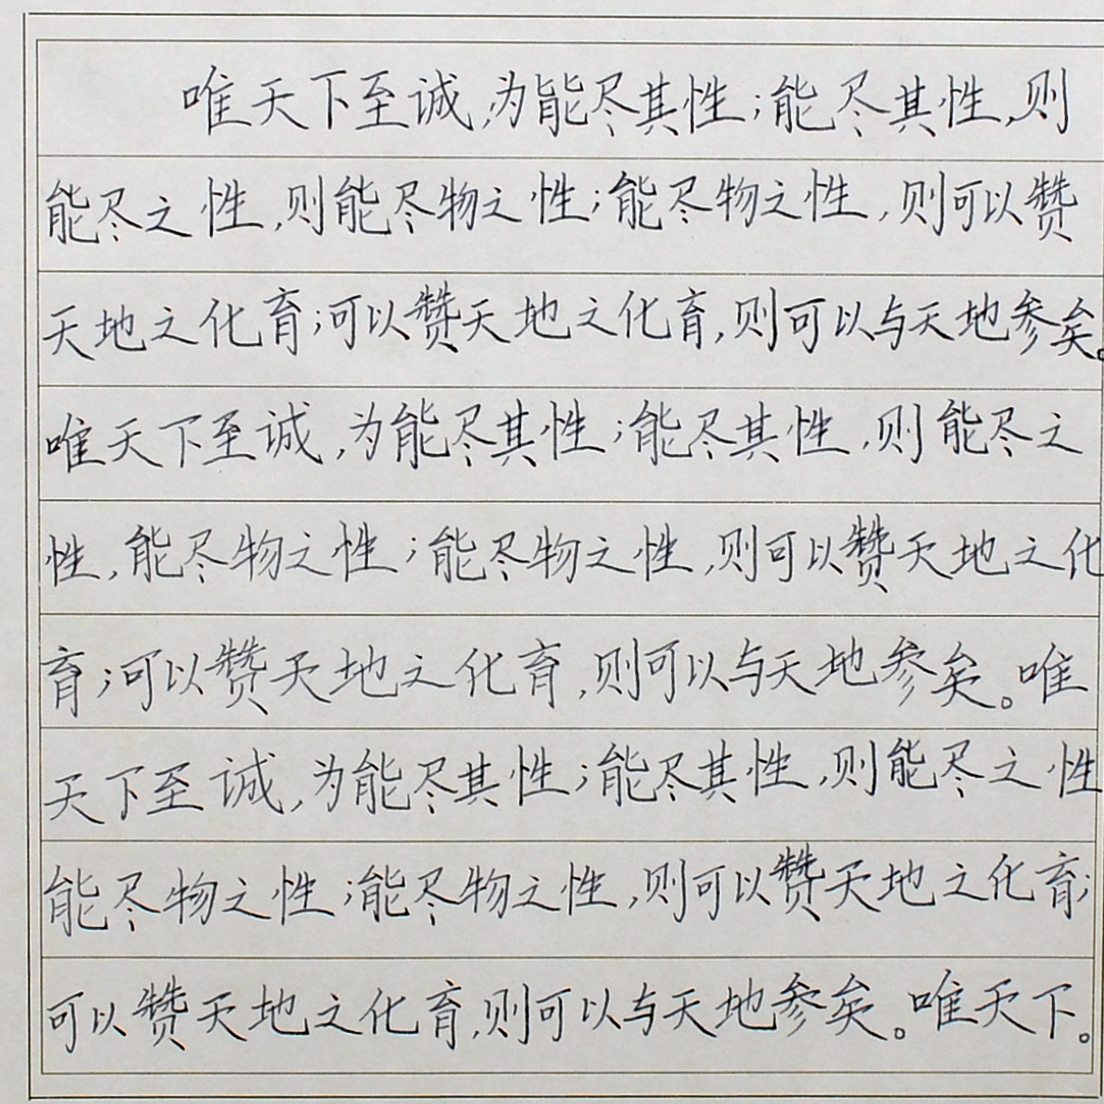 唯天下至诚,为能尽其性;能尽其性,则
能尽之性,则能尽物之性;能尽物之性,则可以赞
天地之化育;可以赞天地之化育,则可以与天地参矣。
唯天下至诚,为能尽其性;能尽其性,则能尽之
性,能尽物之性;能尽物之性,则可以赞天地之化
育;可以赞天地之化育,则可以与天地参矣。唯
天下至诚,为能尽其性;能尽其性,则能尽之性
能尽物之性;能尽物之性,则可以赞天地之化育;
可以赞天地之化育,则可以与天地参矣。唯天下。